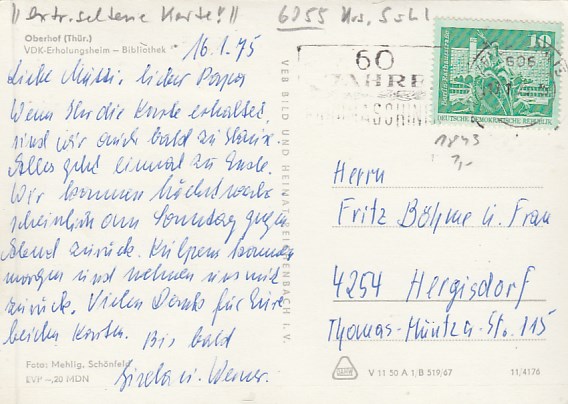 "extr. seltene Karte!" 6055 Krs. Suhl
Oberhof (Thür.)
VDK-Erholungsheim – Bibliothek
16.1.75
Liebe Mutti, lieber Papa
Wenn Ihr die Karte erhaltet,
sind wir auch bald zu Hause.
Alles geht einmal zu Ende.
Wir kommen höchstwahr-
scheinlich am Sonntag gegen
Abend zurück. kommen
morgen und nehmen uns mit
zurück. Vielen Dank für Eure
beiden Karten. Bis bald
Gisela u. Werner.
Foto: Mehlig, Schönfeld
EVP –,20 MDN
VEB BILD UND HEIMAT REICHENBACH I. V.
60
JAHRE
10
DEUTSCHE DEMOKRATISCHE REPUBLIK
606
1843
3,-
Herrn
Fritz Böhme u. Frau
4254 Hergisdorf
Thomas-Müntza-Str. 115
V 11 50 A 1, B 519/67
11/4176